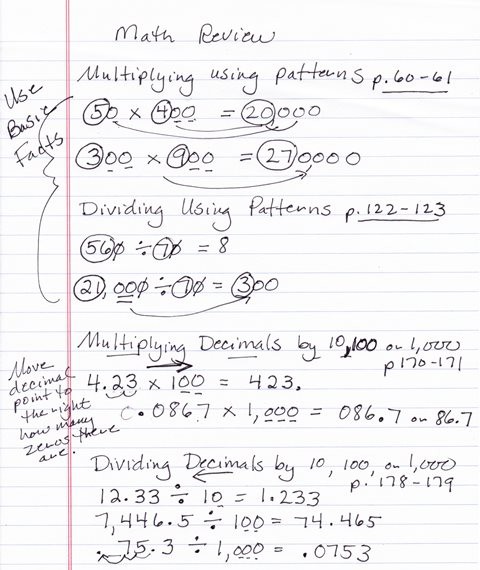 Math Review
Multiplying using patterns p. 60-61
Use
Basic
Facts
50 × 400 = 20000
300 × 900 = 270000
Dividing Using Patterns p. 122-123
560 ÷ 70 = 8
21,000 ÷ 70 = 300
Multiplying Decimals by 10, 100 or 1,000
p 170-171
Move
decimal
point to
the right
how many
zeros there
are.
4.23 × 100 = 423.
0.0867 × 1,000 = 086.7 or 86.7
Dividing Decimals by 10, 100, or 1,000
p. 178-179
12.33 ÷ 10 = 1.233
7,446.5 ÷ 100 = 74.465
75.3 ÷ 1,000 = .0753